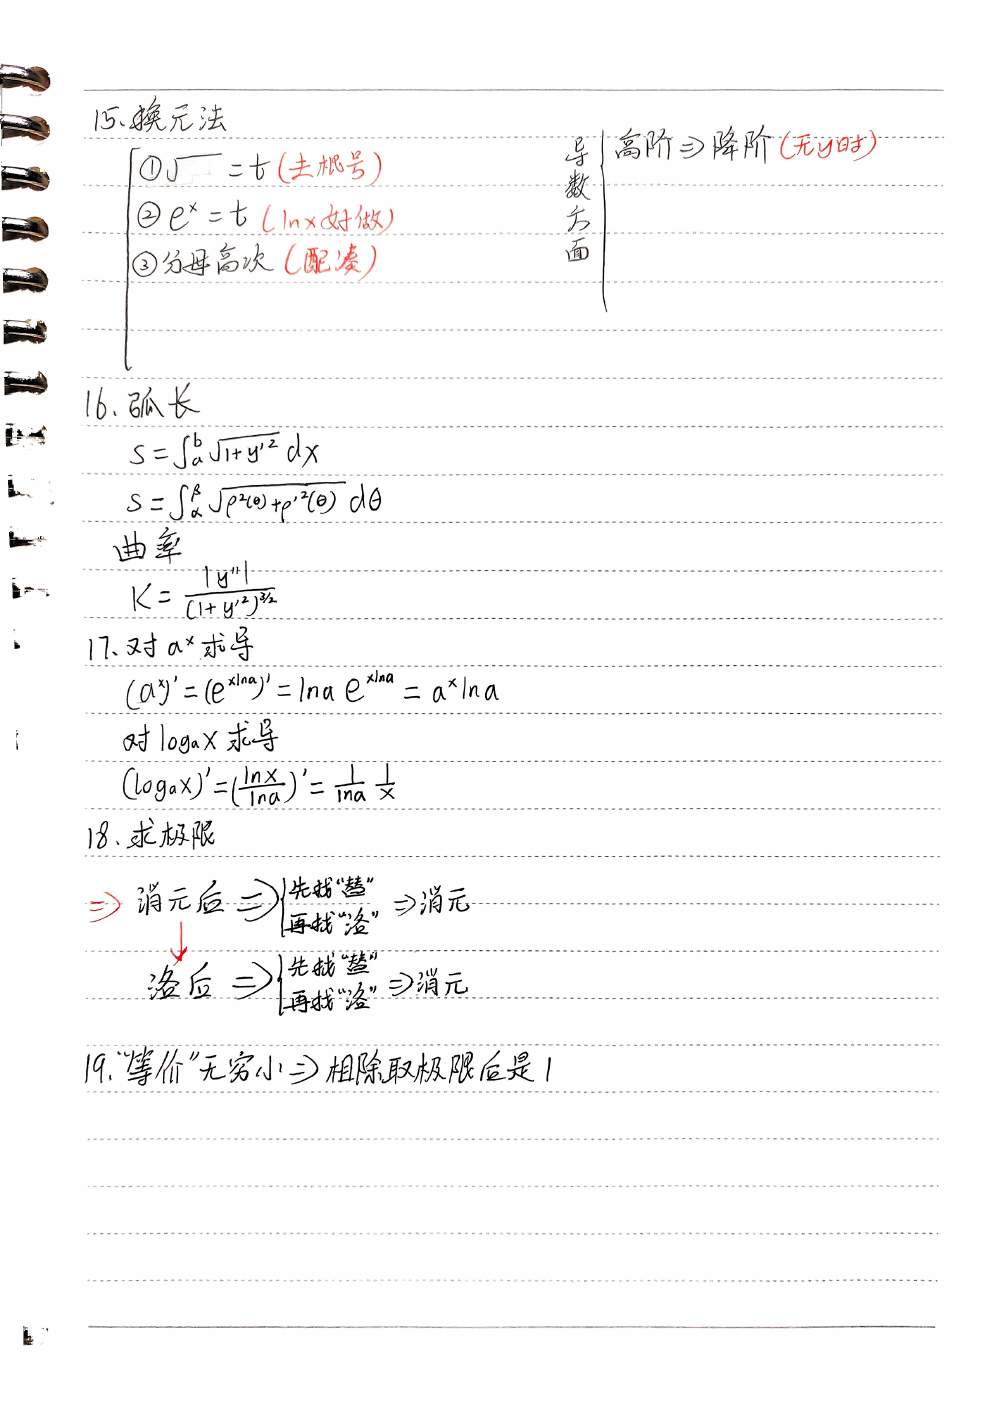 15.换元法
①√ =t(去根号)
②eˣ=t(lnx好做)
③分母高次(配凑)
导数方面
高阶⇒降阶(无y时)
16.弧长
S=∫ₐᵇ√(1+y'²) dx
S=∫_α^β√(ρ²(θ)+ρ'²(θ)) dθ
曲率
K=|y''|/(1+y'²)^(3/2)
17.对aˣ求导
(aˣ)'=(e^(xlna))'=lna e^(xlna)=aˣlna
对logₐx求导
(logₐx)'=(lnx/lna)'=1/lna 1/x
18.求极限
⇒消元后⇒{先找"替" 再找"洛"⇒消元
↓
洛后⇒{先找"替" 再找"洛"⇒消元
19."等价"无穷小⇒相除取极限后是1